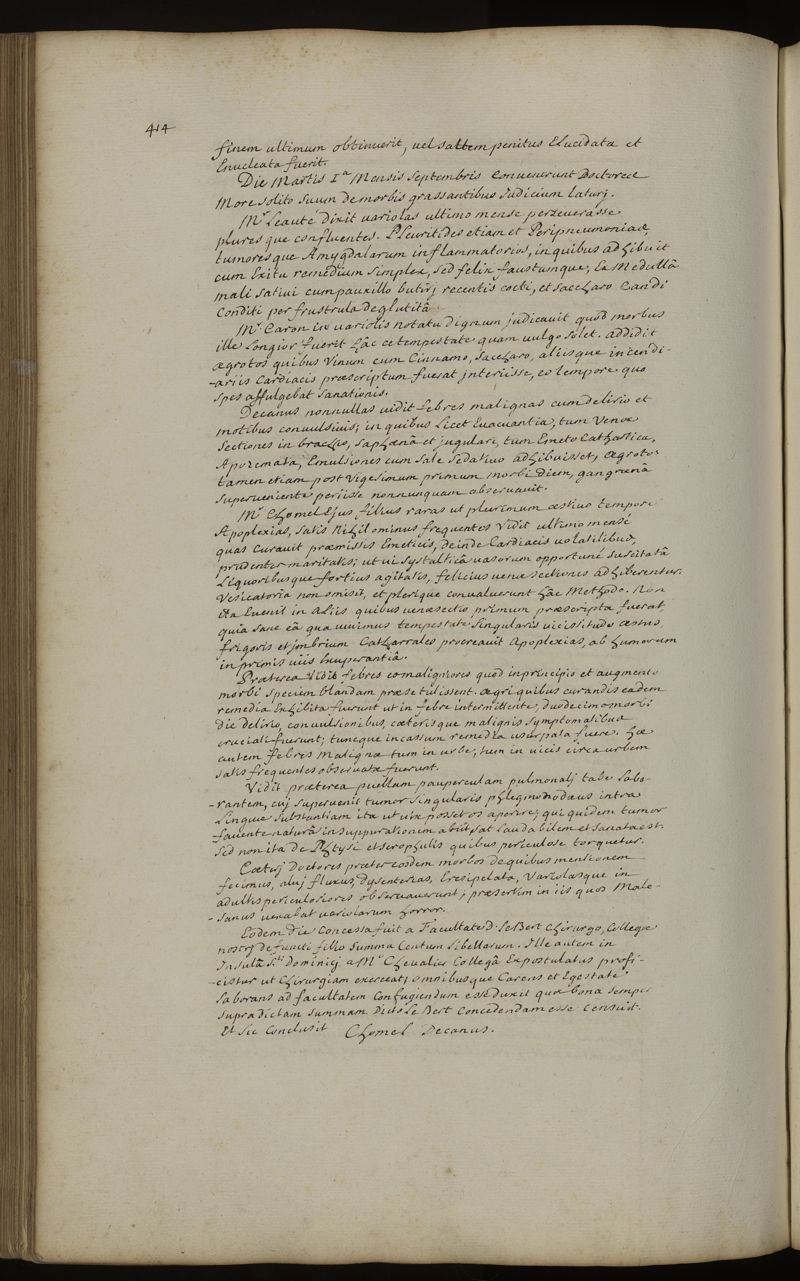 414
finem ultimum obtinuerit, vel saltem penitus Elucidata et
Enucleata fuerit.
Die Martis 1.ª Mensis Septembris Convenerunt Doctores
More solito suum de morbis grassantibus Judicium laturj.
M.r Leauté Dixit variolas ultimo mense perseverasse
pluresque confluentes. Pleuritides etiam et Peripneumonias,
tumoresque Amygdalarum inflammatorios, in quibus adhibuit
cum Exitu remedium simplex, sed felix faustumque, Ex Medullâ
mali sativi cum pauxillo butirj recentis cocti, et saccharo Candi
Conditi per frustrula deglutitâ.
M.r Caron in variolis notatu dignum judicavit quod morbus
ille longior fuerit hâc ce tempestate quam vulgo solet. addidit
ægrotos quibus vinum cum Cinnamo, saccharo, aliisque incendi-
-ariis Cardiacis præscriptum fuerat jnteriisse, eo tempore quo
spes affulgebat sanationis.
Decanus nonnullas vidit febres malignas cum delirio et
motibus convulsivis; in quibus licet Evacuantia, tum venæ
sectiones in brachio, saphænâ et jugulari, tum Emeto Cathartica,
Apozemata, Emulsiones cum sale sedativo adhibuisset, ægrotos
tamen etiam post vigesimum primum morbi Diem, gangrænâ
superveniente periisse nonnunquam observavit.
M.r Chomel Ejus filius raras ut plurimum æstivo tempore
Apoplexias, satis nihilominus frequentes vidit ultimo mense
quas curavit præmissis Emeticis, deinde Cardiacis volatilibus,
prudenter maritatis; ut vi systalticâ vasorum opportunè suscitatâ
Liquoribusque fortius agitatis, felicius venæ sectiones adhiberentur.
Vesicatoria non omisit, et plerique convaluerunt hâc Methodo. Non
ita Evenit in aliis quibus venæsectio primum præscripta fuerat,
quia sane eâ qua vivimus tempestate singularis vicissitudo æstus,
frigoris et jmbrium Catharrales procreavit Apoplexias, ab humorum
in primis viis Exuperantiâ.
Præterea vidit febres eo maligniores quod in principio et augmento
morbi speciem blandam præ se tulissent. ægri quibus curandis eadem
remedia Exhibita fuerunt ut in febre intermittente, duodecimo morbi
die delirio, convulsionibus, cæterisque malignis symptomatibus
cruciati fuerunt; tuncque incassum remedia usurpata fuere. hæ
autem febres malignæ tum in urbe, tum in vicis circa urbem
satis frequentes observatæ fuerunt.
Vidit præterea puellam pauperculam pulmonalj tabe labo-
-rantem, cuj supervenit tumor singularis phlegmonodæus intra
Linguæ substantiam ita ut vix posset os aperire; qui quidem tumor
favente naturâ in suppurationem abiit sat laudabilem et sanata est.
sed non ita de Phtysi et scrophulis quibus periculose torquetur.
Cæterj Doctores præter eosdem morbos de quibus mentionem
fecimus, alvj fluxus, Dysenterias, Eresipelata, Variolasque in
adultis periculosiores observaverunt; præsertim in iis quos Male-
-sanus vexabat variolarum horror.
Eodem Die Concessa fuit a Facultate D. Le Bert Chirurgo, Collegæ
nostrj defuncti filio summa Centum libellarum. Ille autem in
Insulâ S.ti Dominicj a M.r Chevalier Collegâ Expostulatus profi-
-cistur ut Chirurgiam exerceat; omnibusque Carens et Egestate
laborans ad facultatem Confugiendum esse duxit quæ bona semper
supradictam summam Dicto Le Bert Concedendam esse Censuit.
Et sic Conclusit Chomel Decanus.